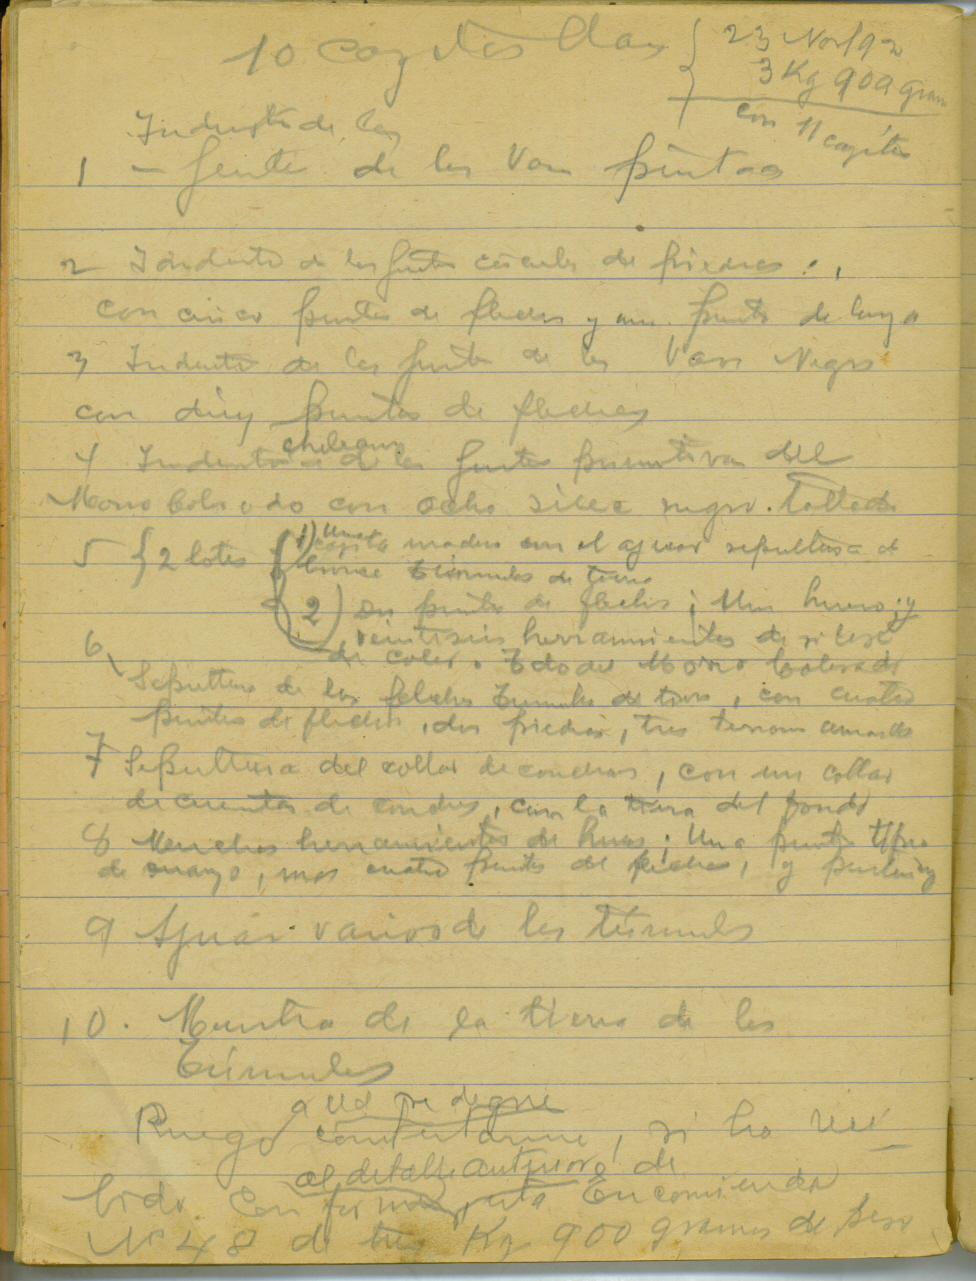 10 cagitas
23 Nov/92
3 Kg 900 gram
con 11 cagitas
Industria de las
1 – Gente de los Van pintas
2 Industria de las gentes circulos de piedras
con cinco puntas de flechas y una punta de lanza
3 Industria de las gente de los Vasos Negro
con diez puntas de flechas
chileana
4 Industria de las gentes primitivas del
Morro Colorado con ocho silex negro tallado
5 {2 lotes { 1) Una
cagita madera con el ajuar sepultura de
Túmulos de tierra
2) puntas de flecha; Un hueso; y
veintiseis herramientas de silex
de color. Todo del Morro Colorado
6 Sepultura de las flechas Túmulos de tierra, con cuatro
puntas de flecha, dos piedras, tres
7 Sepultura del collar de conchas, con un collar
de cuentas de conchas, con la tierra del fondo
8 Muchas herramientas de hueso; Una punta tipo
de , mas cuatro puntas de flechas, y
9 Ajuar varios de los túmulos
10. Muestra de la tierra de los
Túmulos
a Ud se digne
Ruego contestarme, si ha reci
el detalle anterior de
bido Conforme, esta Encomienda
Nº 48 de tres Kg 900 gramos de peso